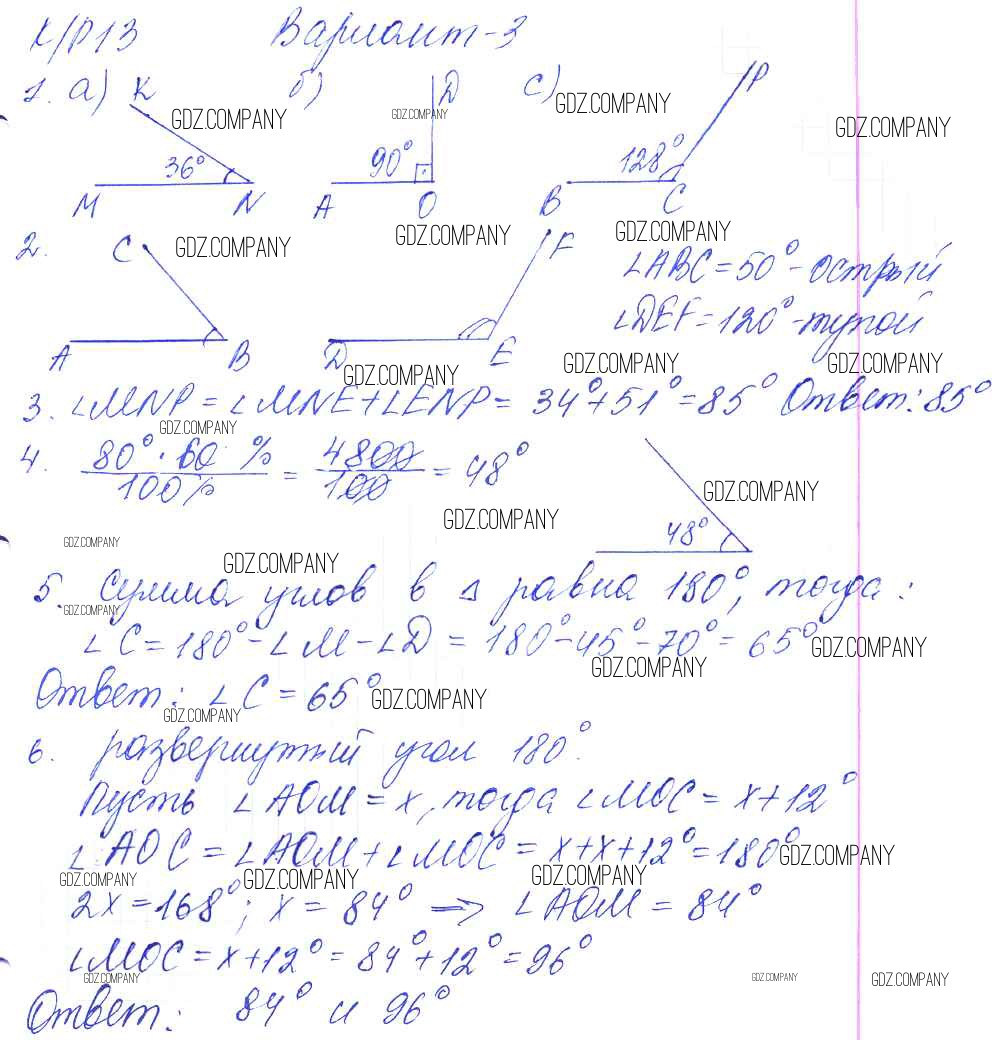 К/Р13 Вариант-3
1. а) K б) D с) P
GDZ.COMPANY GDZ.COMPANY GDZ.COMPANY GDZ.COMPANY
36° 90° 128°
M N A O B C
2. C GDZ.COMPANY GDZ.COMPANY F GDZ.COMPANY
∠ABC = 50° - острый
∠DEF = 120° - тупой
A B D E
GDZ.COMPANY GDZ.COMPANY GDZ.COMPANY
3. ∠MNP = ∠MNE + ∠ENP = 34° + 51° = 85° Ответ: 85°
GDZ.COMPANY
4. 80° · 60 % / 100% = 4800 / 100 = 48°
GDZ.COMPANY
48°
GDZ.COMPANY
GDZ.COMPANY GDZ.COMPANY
5. Сумма углов в △ равна 180°, тогда:
GDZ.COMPANY
∠C = 180° - ∠M - ∠D = 180° - 45° - 70° = 65° GDZ.COMPANY
GDZ.COMPANY
Ответ: ∠C = 65° GDZ.COMPANY
GDZ.COMPANY
6. развернутый угол 180°.
Пусть ∠AOM = x, тогда ∠MOC = x + 12°
∠AOC = ∠AOM + ∠MOC = x + x + 12° = 180° GDZ.COMPANY
GDZ.COMPANY GDZ.COMPANY GDZ.COMPANY
2x = 168°; x = 84° => ∠AOM = 84°
∠MOC = x + 12° = 84° + 12° = 96°
GDZ.COMPANY GDZ.COMPANY GDZ.COMPANY
Ответ: 84° и 96°